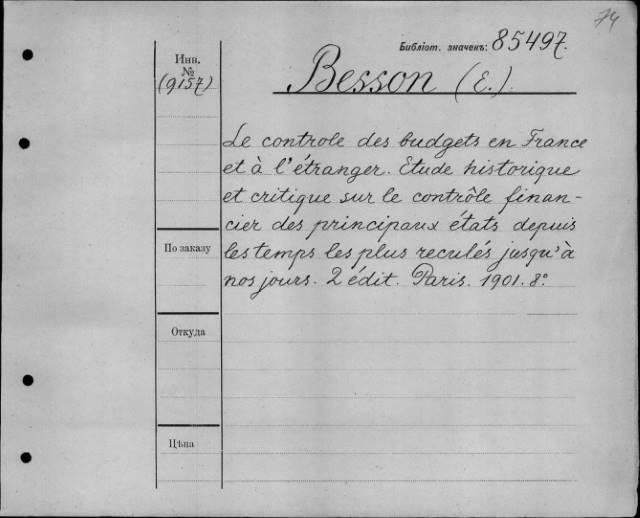 74
Библіот. значекъ: 85497.
Инв.
№
(9157)
Besson (E.).
Le controle des budgets en France
et à l'étranger. Etude historique
et critique sur le contrôle finan-
cier des principaux états depuis
les temps les plus reculés jusqu'à
nos jours. 2 édit. Paris. 1901. 8°.
По заказу
Откуда
Цѣна